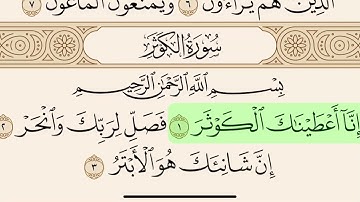 الَّذِينَ هُمْ يُرَاءُونَ ٦ وَيَمْنَعُونَ الْمَاعُونَ ٧
سُورَةُ الْكَوْثَرِ
بِسْمِ اللَّهِ الرَّحْمَٰنِ الرَّحِيمِ
إِنَّا أَعْطَيْنَاكَ الْكَوْثَرَ ١ فَصَلِّ لِرَبِّكَ وَانْحَرْ ٢
إِنَّ شَانِئَكَ هُوَ الْأَبْتَرُ ٣